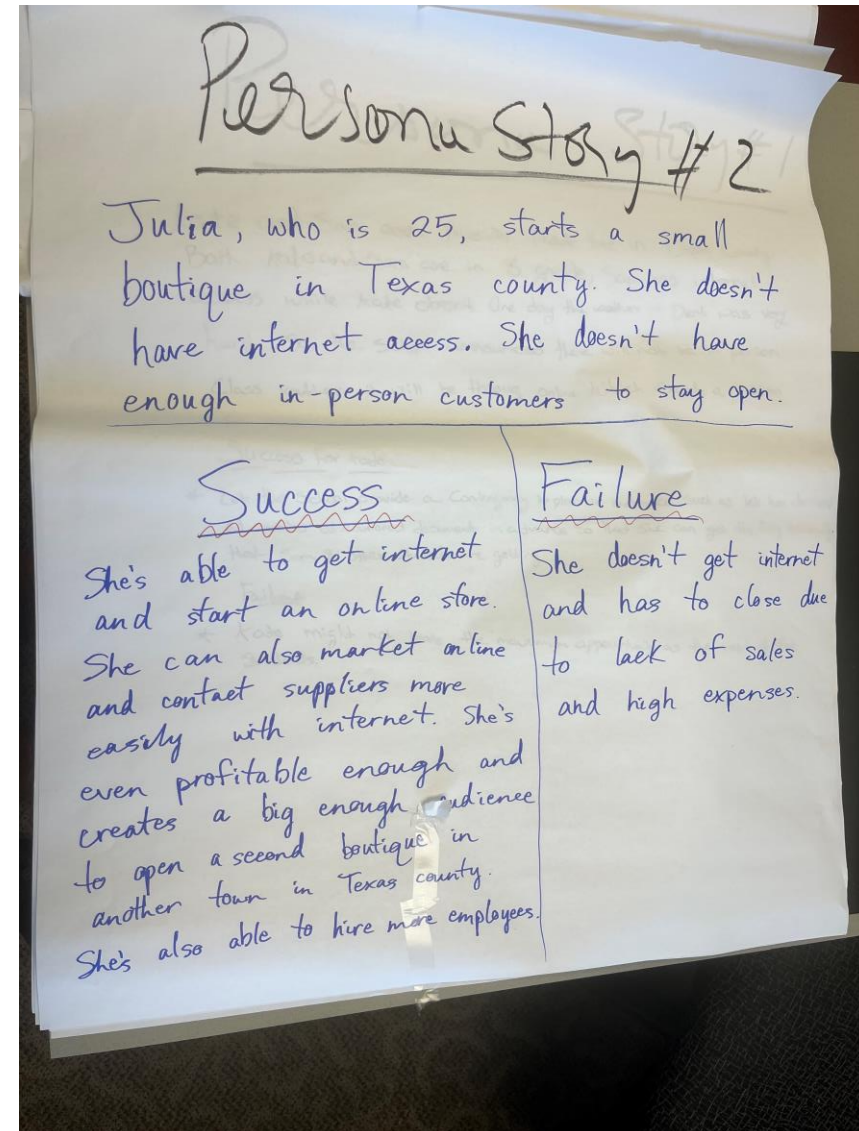 Persona Story #2
Julia, who is 25, starts a small
boutique in Texas county. She doesn't
have internet access. She doesn't have
enough in-person customers to stay open.
Success
She's able to get internet
and start an online store.
She can also market online
and contact suppliers more
easily with internet. She's
even profitable enough and
creates a big enough audience
to open a second boutique in
another town in Texas county.
She's also able to hire more employees.
Failure
She doesn't get internet
and has to close due
to lack of sales
and high expenses.